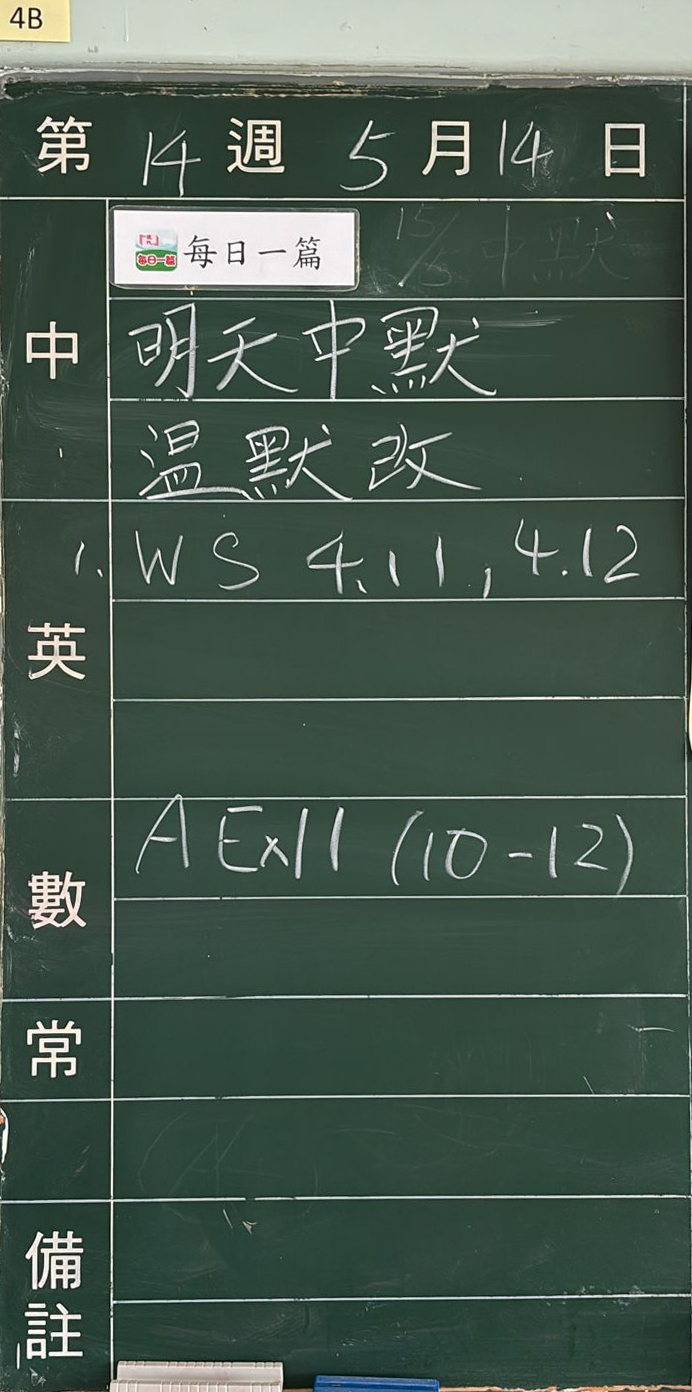 4B
第 14 週 5 月 14 日
每日一篇 每日一篇 15/5 中默
中
明天中默
温默改
英
1. WS 4.11, 4.12
數
A Ex11 (10-12)
常
備註